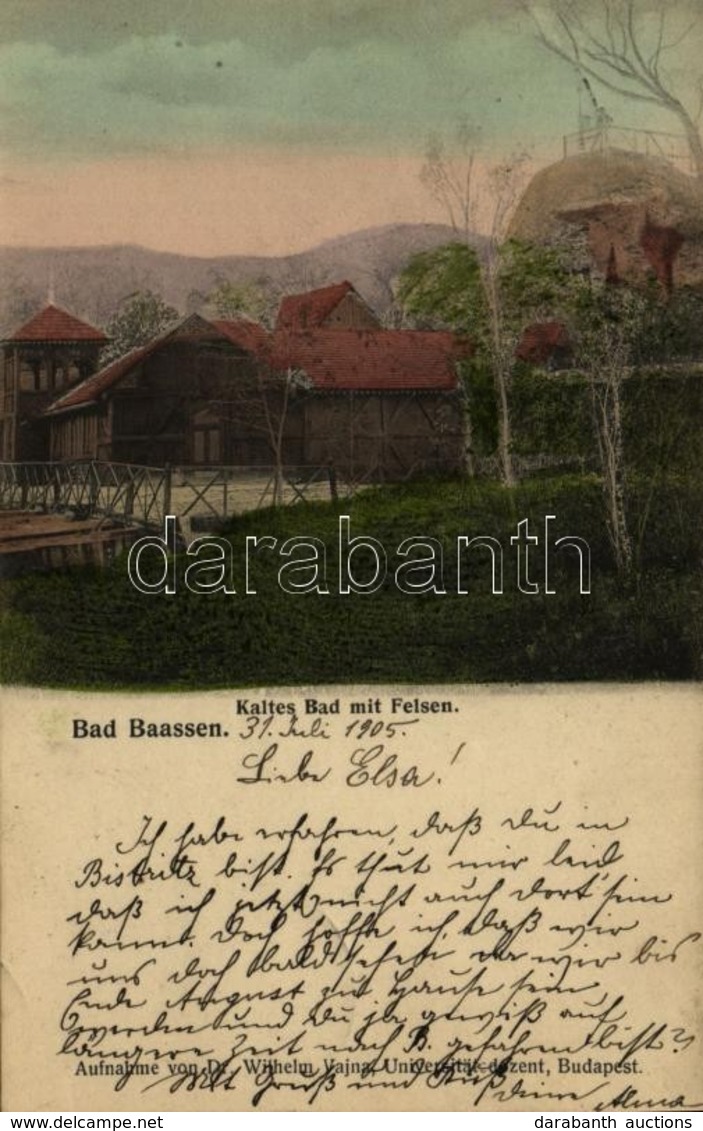 darabanth
Kaltes Bad mit Felsen.
Bad Baassen. 31. Juli 1905.
Liebe Elsa!
Ich habe erfahren, daß du in
Bistritz bist. Es thut mir leid
daß ich jetzt nicht auch dort sein
kann. Doch hoffe ich, daß wir
uns doch bald sehen da wir bis
Ende August zu Hause sein
werden und du ja gewiß auf
längere Zeit nach B. gefahren bist?
Aufnahme von Dr. Wilhelm Vajna, Universität-dozent, Budapest.
Mit Gruß und Kuß deine Alma
darabanth auctions